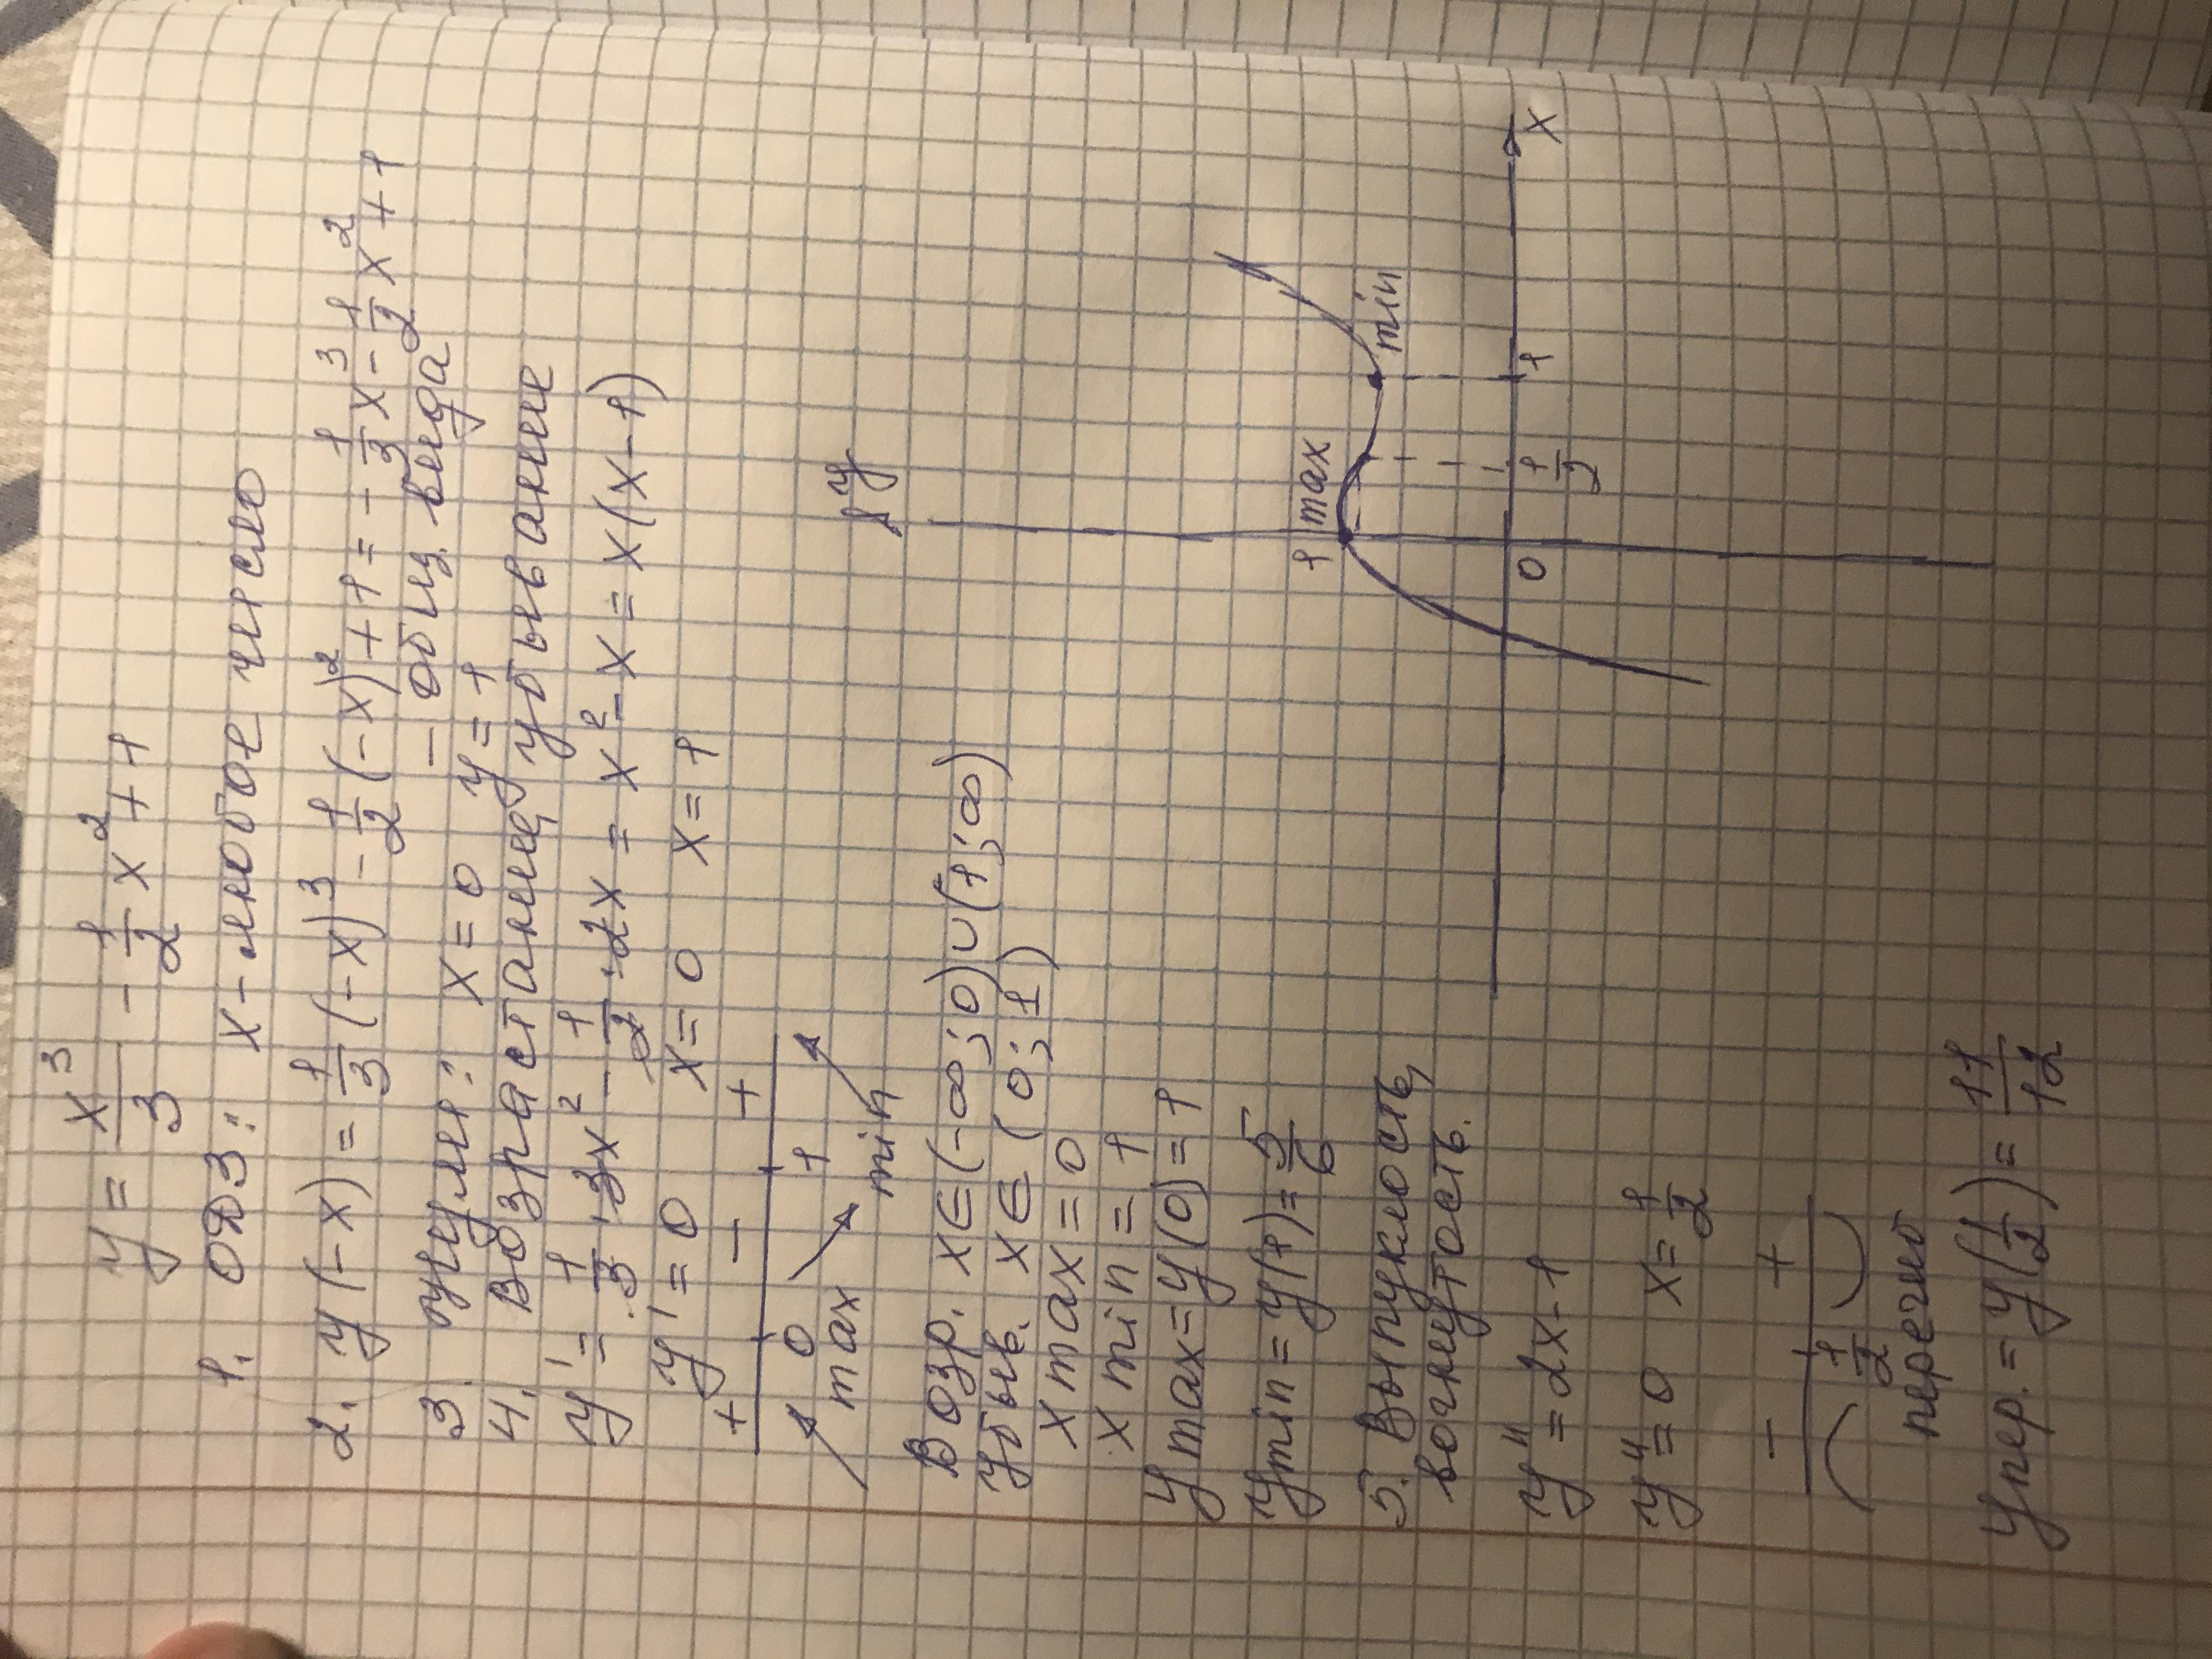 y = x³/3 - 1/2 x² + 1
1. ОДЗ: x - любое число
2. y(-x) = 1/3 (-x)³ - 1/2 (-x)² + 1 = - 1/3 x³ - 1/2 x² + 1
- общ. вида
3. нули: x = 0 y = 1
4. Возрастание, убывание
y' = 1/3 · 3x² - 1/2 · 2x = x² - x = x(x-1)
y' = 0 x = 0 x = 1
+ - +
0 1
max min
Возр. x ∈ (-∞; 0) ∪ (1; ∞)
убыв. x ∈ (0; 1)
x max = 0
x min = 1
y max = y(0) = 1
y min = y(1) = 5/6
5. Выпуклость,
вогнутость.
y" = 2x - 1
y" = 0 x = 1/2
- +
1/2
перегиб
y пер. = y(1/2) = 11/12
y
1 max
min
0 1/2 1 x